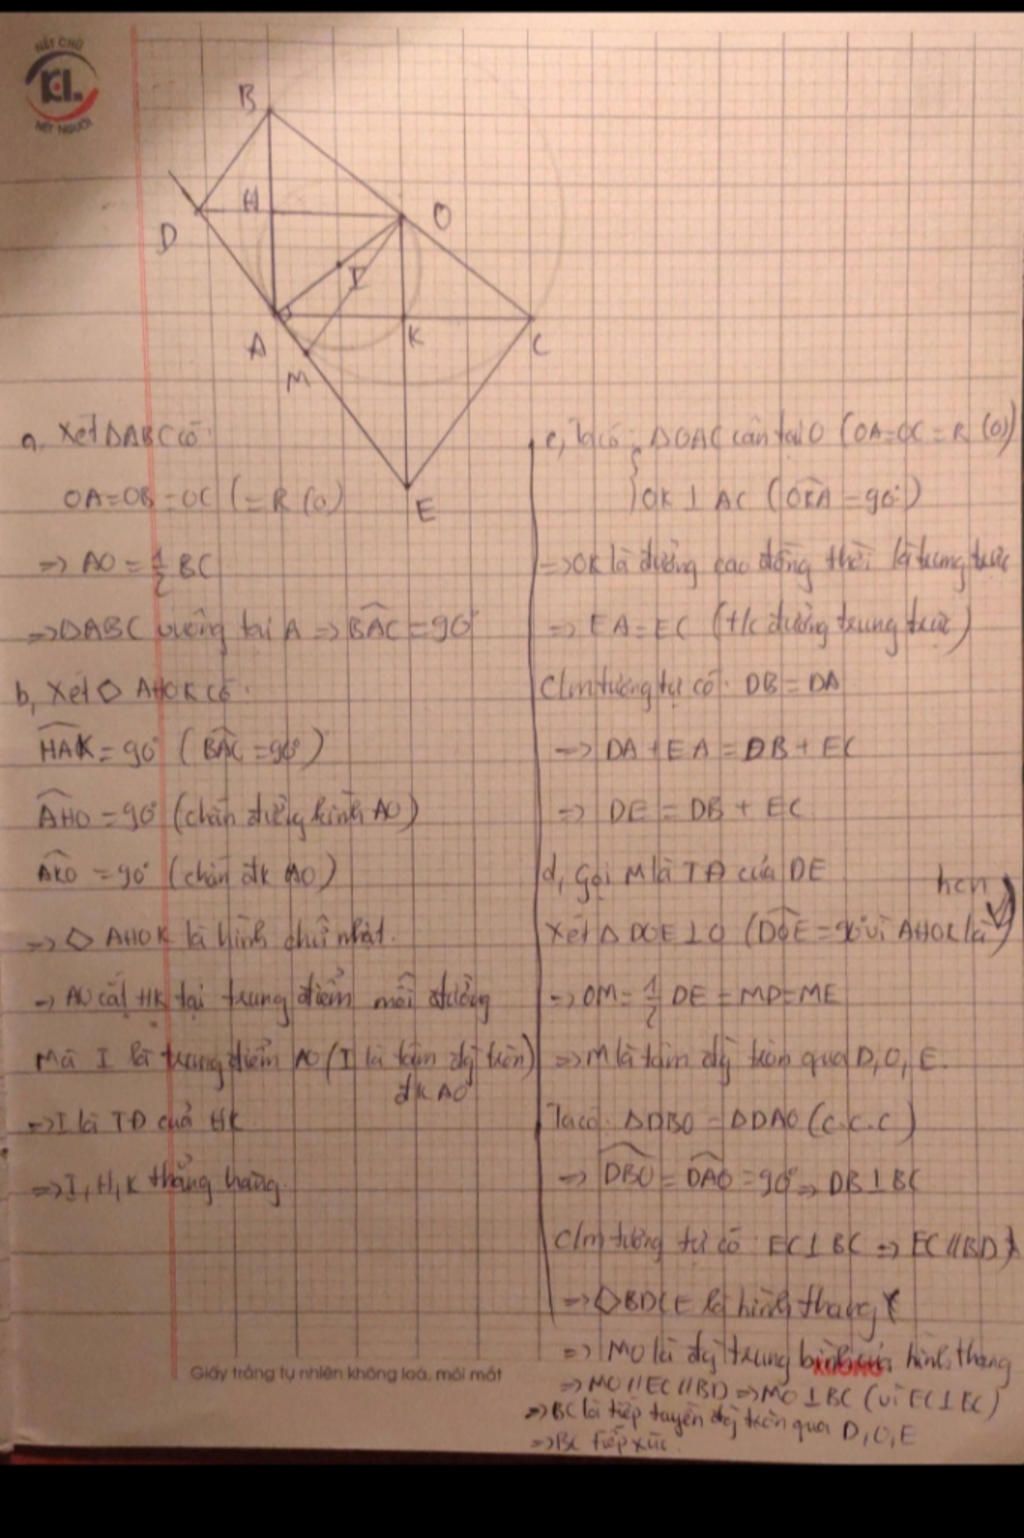 NÉT CHỮ
KL
NẾT NGƯỜI
B
H
O
D
I
A
K
C
M
E
a. Xét ΔABC có:
OA=OB=OC (=R(O))
=> AO = 1/2 BC
=> ΔABC vuông tại A => BAC = 90°
b, Xét ◇ AHOK có:
HAK = 90° (BAC = 90°)
AHO = 90° (chắn đường kính AO)
AKO = 90° (chắn đk AO)
=> ◇ AHOK là hình chữ nhật.
=> AO cắt HK tại trung điểm mỗi đường
Mà I là trung điểm AO (I là tâm đg tròn)
đk AO
=> I là TĐ của HK
=> I, H, K thẳng hàng.
c, Ta có: ΔOAC cân tại O (OA=OC=R(O))
OK ⊥ AC (OKA = 90°)
=> OK là đường cao đồng thời là trung trực
=> EA = EC (t/c đường trung trực)
C/m tương tự có: DB = DA
=> DA + EA = DB + EC
=> DE = DB + EC
d, Gọi M là TĐ của DE
hcn
Xét Δ DOE ⊥ O (DOE = 90° vì AHOK là)
=> OM = 1/2 DE = MD = ME
=> M là tâm đg tròn qua D, O, E.
Ta có: ΔDBO = ΔDAO (c.c.c)
=> DBO = DAO = 90° => DB ⊥ BC
C/m tương tự có: EC ⊥ BC => EC // BD
=> ◇BDCE là hình thang
=> MO là đg trung bình của hình thang
=> MO // EC // BD => MO ⊥ BC (vì EC ⊥ BC)
=> BC là tiếp tuyến đg tròn qua D, O, E
=> BC tiếp xúc.
Giấy trắng tự nhiên không loá, mỏi mắt